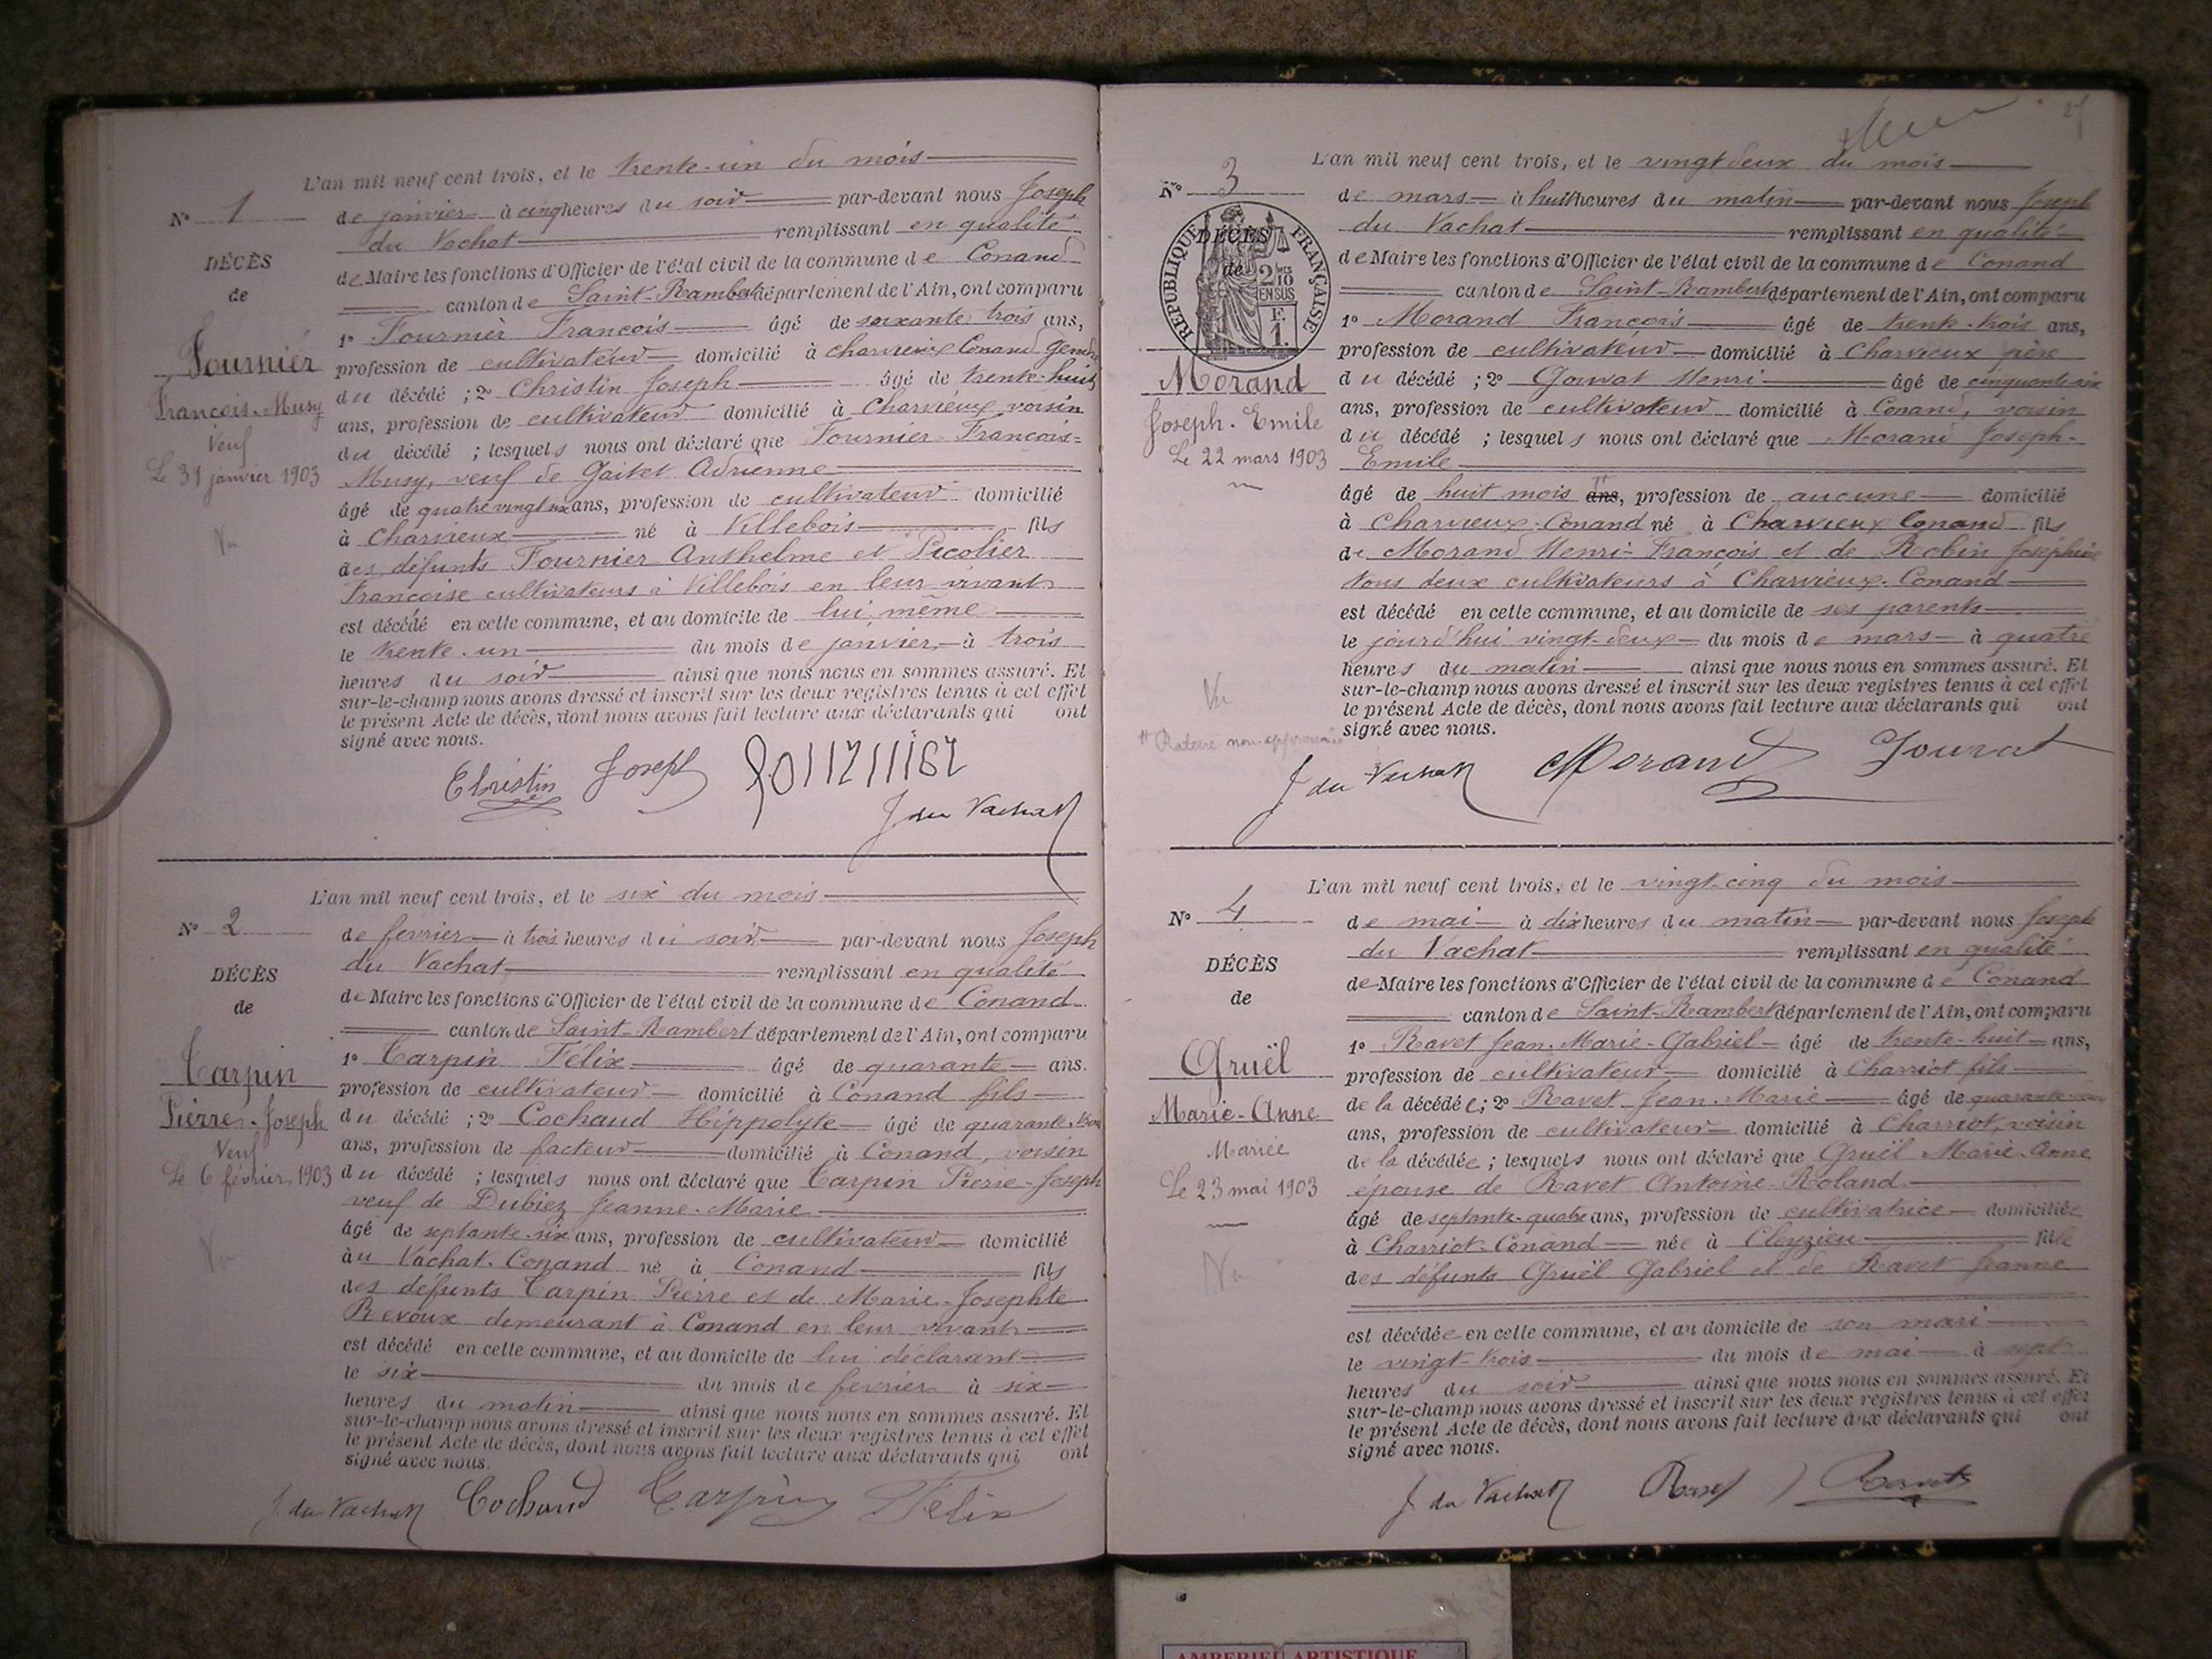 L'an mil neuf cent trois, et le trente-un du mois
N° 1
de janvier à cinq heures du soir par-devant nous Joseph
du Vachat remplissant en qualité
DÉCÈS
de Maire les fonctions d'Officier de l'état civil de la commune de Conand
de
canton de Saint-Rambert département de l'Ain, ont comparu
1° Fournier François âgé de soixante trois ans,
Fournier
profession de cultivateur domicilié à Charvieux Conand gendre
du décédé ; 2° Christin Joseph âgé de trente-huit
François-Musy
ans, profession de cultivateur domicilié à Charvieux voisin
Veuf
du décédé ; lesquels nous ont déclaré que Fournier François-
Le 31 janvier 1903
Musy, veuf de Gaitet Adrienne
âgé de quatre vingt ans, profession de cultivateur domicilié
Vu
à Charvieux né à Villebois fils
des défunts Fournier Anthelme et Picolier
Françoise cultivateurs à Villebois en leur vivant
est décédé en cette commune, et au domicile de lui même
le trente-un du mois de janvier à trois
heures du soir ainsi que nous nous en sommes assuré. Et
sur-le-champ nous avons dressé et inscrit sur les deux registres tenus à cet effet
le présent Acte de décès, dont nous avons fait lecture aux déclarants qui ont
signé avec nous.
Christin Joseph
J du Vachat
L'an mil neuf cent trois, et le six du mois
N° 2
de fevrier à trois heures du soir par-devant nous Joseph
du Vachat remplissant en qualité
DÉCÈS
de Maire les fonctions d'Officier de l'état civil de la commune de Conand
de
canton de Saint-Rambert département de l'Ain, ont comparu
1° Carpin Félix âgé de quarante ans.
Carpin
profession de cultivateur domicilié à Conand fils
Pierre-Joseph
du décédé ; 2° Cochaud Hippolyte âgé de quarante
ans, profession de facteur domicilié à Conand, voisin
Veuf
Le 6 février 1903
du décédé ; lesquels nous ont déclaré que Carpin Pierre-Joseph
veuf de Dubiez Jeanne-Marie
âgé de septante-six ans, profession de cultivateur domicilié
Vu
au Vachat-Conand né à Conand fils
des défunts Carpin Pierre et de Marie-Josephte
Revoux demeurant à Conand en leur vivant
est décédé en cette commune, et au domicile de lui déclarant
le six du mois de fevrier à six
heures du matin ainsi que nous nous en sommes assuré. Et
sur-le-champ nous avons dressé et inscrit sur les deux registres tenus à cet effet
le présent Acte de décès, dont nous avons fait lecture aux déclarants qui ont
signé avec nous.
J du Vachat Cochaud Carpin Félix
L'an mil neuf cent trois, et le vingt deux du mois
N° 3
de mars à huit heures du matin par-devant nous Joseph
du Vachat remplissant en qualité
DÉCÈS
de
RÉPUBLIQUE FRANÇAISE
2 MES
10
EN SUS
F.
1.
de Maire les fonctions d'Officier de l'état civil de la commune de Conand
canton de Saint-Rambert département de l'Ain, ont comparu
1° Morand François âgé de trente-trois ans,
profession de cultivateur domicilié à Charvieux père
Morand
du décédé ; 2° Gouvat Henri âgé de cinquante six
ans, profession de cultivateur domicilié à Conand, voisin
Joseph-Emile
du décédé ; lesquels nous ont déclaré que Morand Joseph-
Le 22 mars 1903
Emile
âgé de huit mois ans, profession de aucune domicilié
à Charvieux-Conand né à Charvieux Conand fils
de Morand Henri-François et de Robin Joséphine
tous deux cultivateurs à Charvieux-Conand
est décédé en cette commune, et au domicile de ses parents
le jourd'hui vingt-deux du mois de mars à quatre
heures du matin ainsi que nous nous en sommes assuré. Et
Vu
sur-le-champ nous avons dressé et inscrit sur les deux registres tenus à cet effet
le présent Acte de décès, dont nous avons fait lecture aux déclarants qui ont
signé avec nous.
J du Vachat Morand Jouvat
L'an mil neuf cent trois, et le vingt-cinq du mois
N° 4
de mai à dix heures du matin par-devant nous Joseph
du Vachat remplissant en qualité
DÉCÈS
de Maire les fonctions d'Officier de l'état civil de la commune de Conand
de
canton de Saint-Rambert département de l'Ain, ont comparu
1° Ravet Jean-Marie-Gabriel âgé de trente-huit ans,
Gruël
profession de cultivateur domicilié à Charriot fils
de la décédée ; 2° Ravet Jean-Marie âgé de quarante
Marie-Anne
ans, profession de cultivateur domicilié à Charriot, voisin
Mariée
de la décédée ; lesquels nous ont déclaré que Gruël Marie-Anne
Le 23 mai 1903
épouse de Ravet Antoine-Roland
âgé de septante-quatre ans, profession de cultivatrice domiciliée
à Charriot-Conand née à Cleyzieu fille
Vu
des défunts Gruël Gabriel et de Ravet Jeanne
est décédée en cette commune, et au domicile de son mari
le vingt-trois du mois de mai à sept
heures du soir ainsi que nous nous en sommes assuré. Et
sur-le-champ nous avons dressé et inscrit sur les deux registres tenus à cet effet
le présent Acte de décès, dont nous avons fait lecture aux déclarants qui ont
signé avec nous.
J du Vachat Ravet Ravet
AMBERIEU ARTISTIQUE